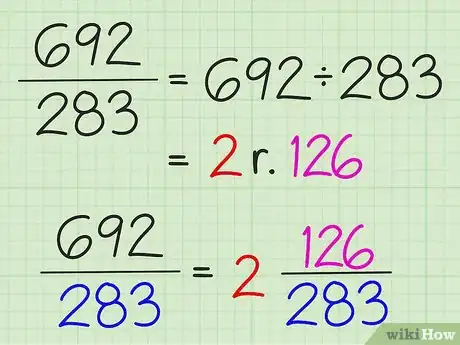 692
283 = 692÷283
= 2 r. 126
692
283 = 2 126
283
wikiHow